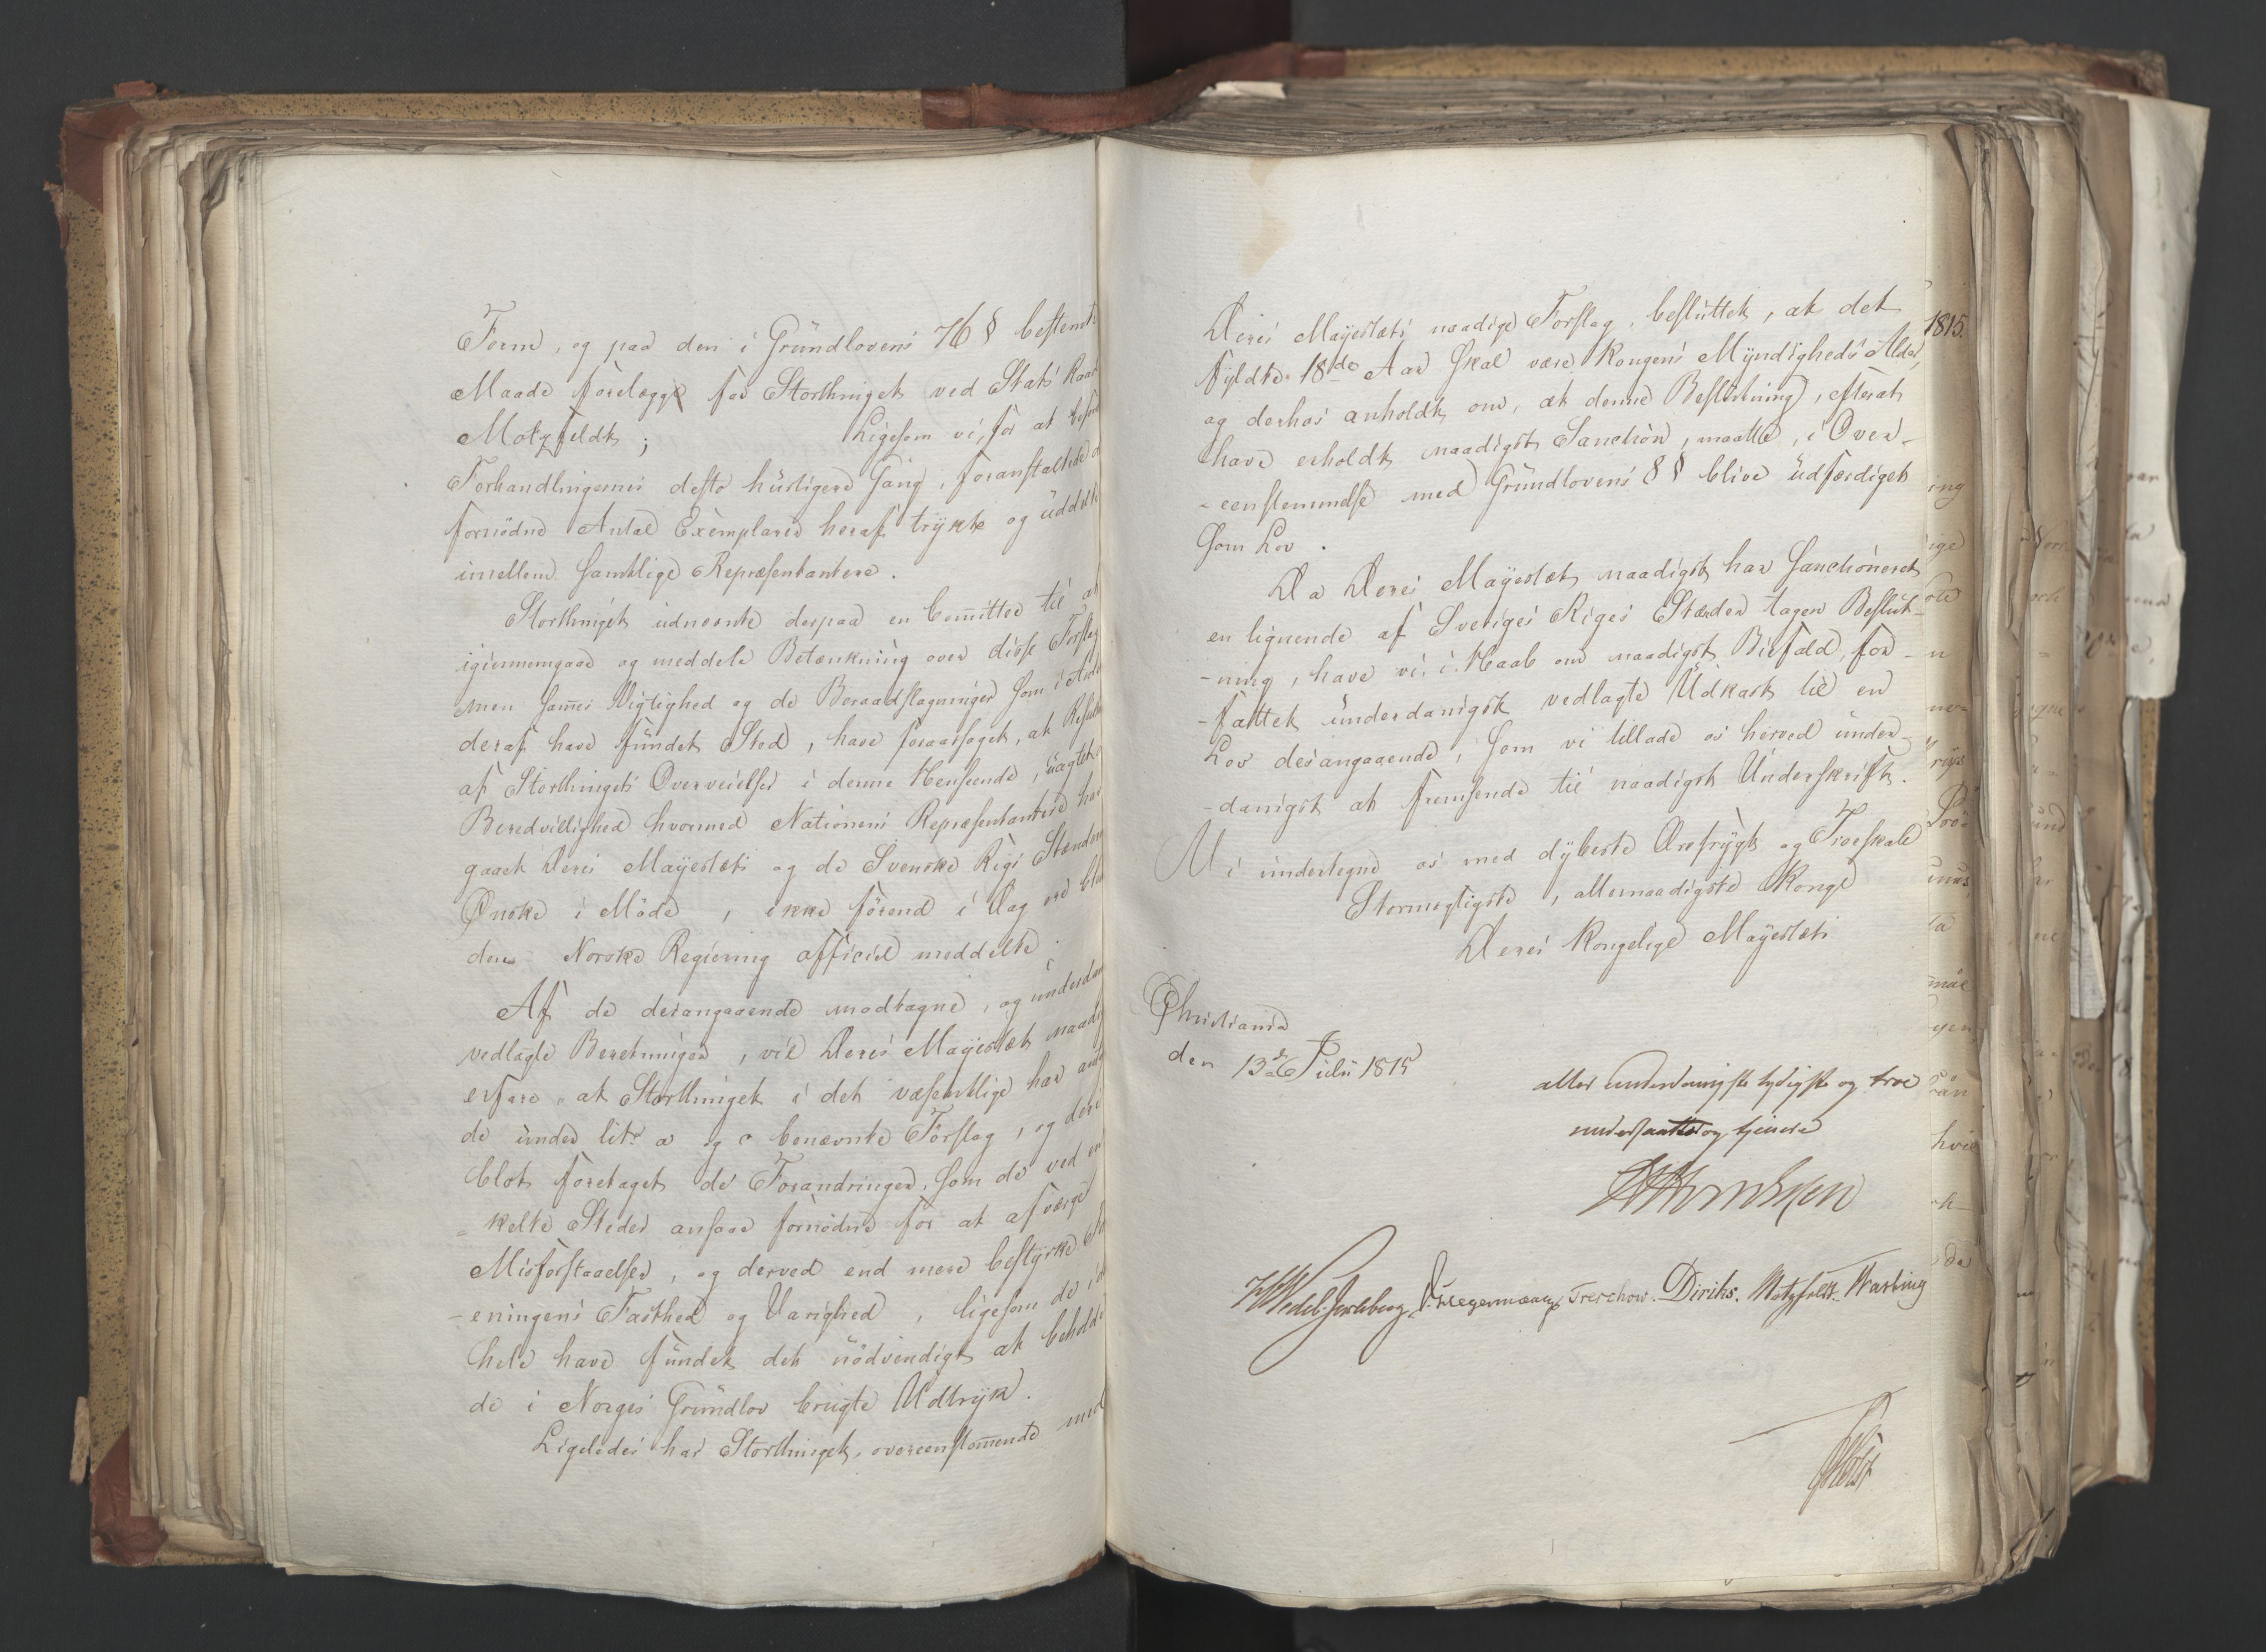 Form, og paa den i Grundlovens 76 § bestemte
Maade forelægge for Storthinget ved Stats Raad
Motzfeldt; Ligesom vi, for at befor
Forhandlingernes desto hurtigere Gang, foranstaltede
fornødne Antal Exemplarer heraf trykte og uddelte
imellem samtlige Repræsentantere.
Storthinget udnevnte derpaa en Committee til at
igiennemgaae og meddele Betænkning over disse Forslag
men sammes Vigtighed og de Beraadslagninger som i
deraf have fundet Sted, have foraarsaget, at Resul
af Storthingets Overveielser i denne Henseende, uagtet
Beredvillighed hvormed Nationens Repræsentantere har
gaaet Deres Mayestæts og de Svenske Rigs Stænders
Ønske i Møde, ikke førend i Dag ere ble
den Norske Regiering officiel meddelte.
Af de desangaaende modtagne, og underdan
vedlagte Beretninger, vil Deres Mayestæt naadigst
erfare, at Storthinget i det væsentlige har an
de under litr a og c benævnte Forslag, og deri
blot foretaget de Forandringer, som de ved en
-kelte Steder ansaae fornødne for at afværge
Misforstaaelser, og derved end mere bestyrke For
-eningens Fasthed og Varighed, ligesom de i
hele have fundet det nødvendigt at beholde
de i Norges Grundlov brugte Udtryk.
Ligeledes har Storthinget, overeenstommende med
1815.
Deres Mayestæts naadige Forslag, besluttet, at det
fyldte 18de Aar skal være Kongens Myndigheds Alder,
og derhos anholdt om, at denne Beslutning, efterat
have erholdt naadigst Sanction, maatte, i Over-
-eenstemmelse med Grundlovens 8 § blive udfærdiget
som Lov.
Da Deres Mayestæt naadigst har Sanctioneret
en lignende af Sveriges Riges Stænder tagen Beslut-
-ning, have vi, i Haab om naadigst Biefald, for-
-fattet underdanigst vedlagte Udkast til en
Lov desangaaende, som vi tillade os herved under-
-danigst at fremsende til naadigst Underskrift.
Vi undertegne os med dybeste Ærefrygt og Troeskab
Stormægtigste, allernaadigste Konge
Deres Kongelige Mayestæts
Christiania
den 13de Julii 1815
aller underdanigste lydigste og troe
undersaatter og tjenere
HHvEssen
HWedel-Jarlsberg Hegermann Treschow. Diriks. Motzfeldt. Hasting
Holst